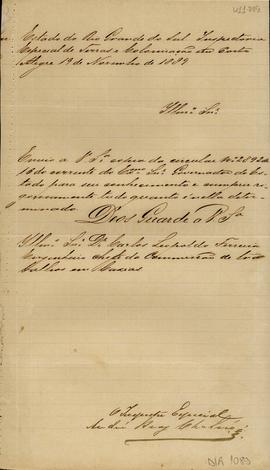 Estado do Rio Grande do Sul Inspectoria
Especial de Terras e Colonisação em Porto
Alegre 19 de Novembro de 1889
Illmo Snr
Envio a V. Sª copia da circular Nº 2892 de
16 do corrente do Exmo Snr Governador do Es-
tado para seu conhecimento e cumpra ri-
gorosamente tudo quanto nella deter-
minado.
Deos Guarde a V. Sª
Illmo Snr Dr Carlos Leopoldo Ferreira
Engenheiro chefe da Commissão de
em
O Inspector Especial